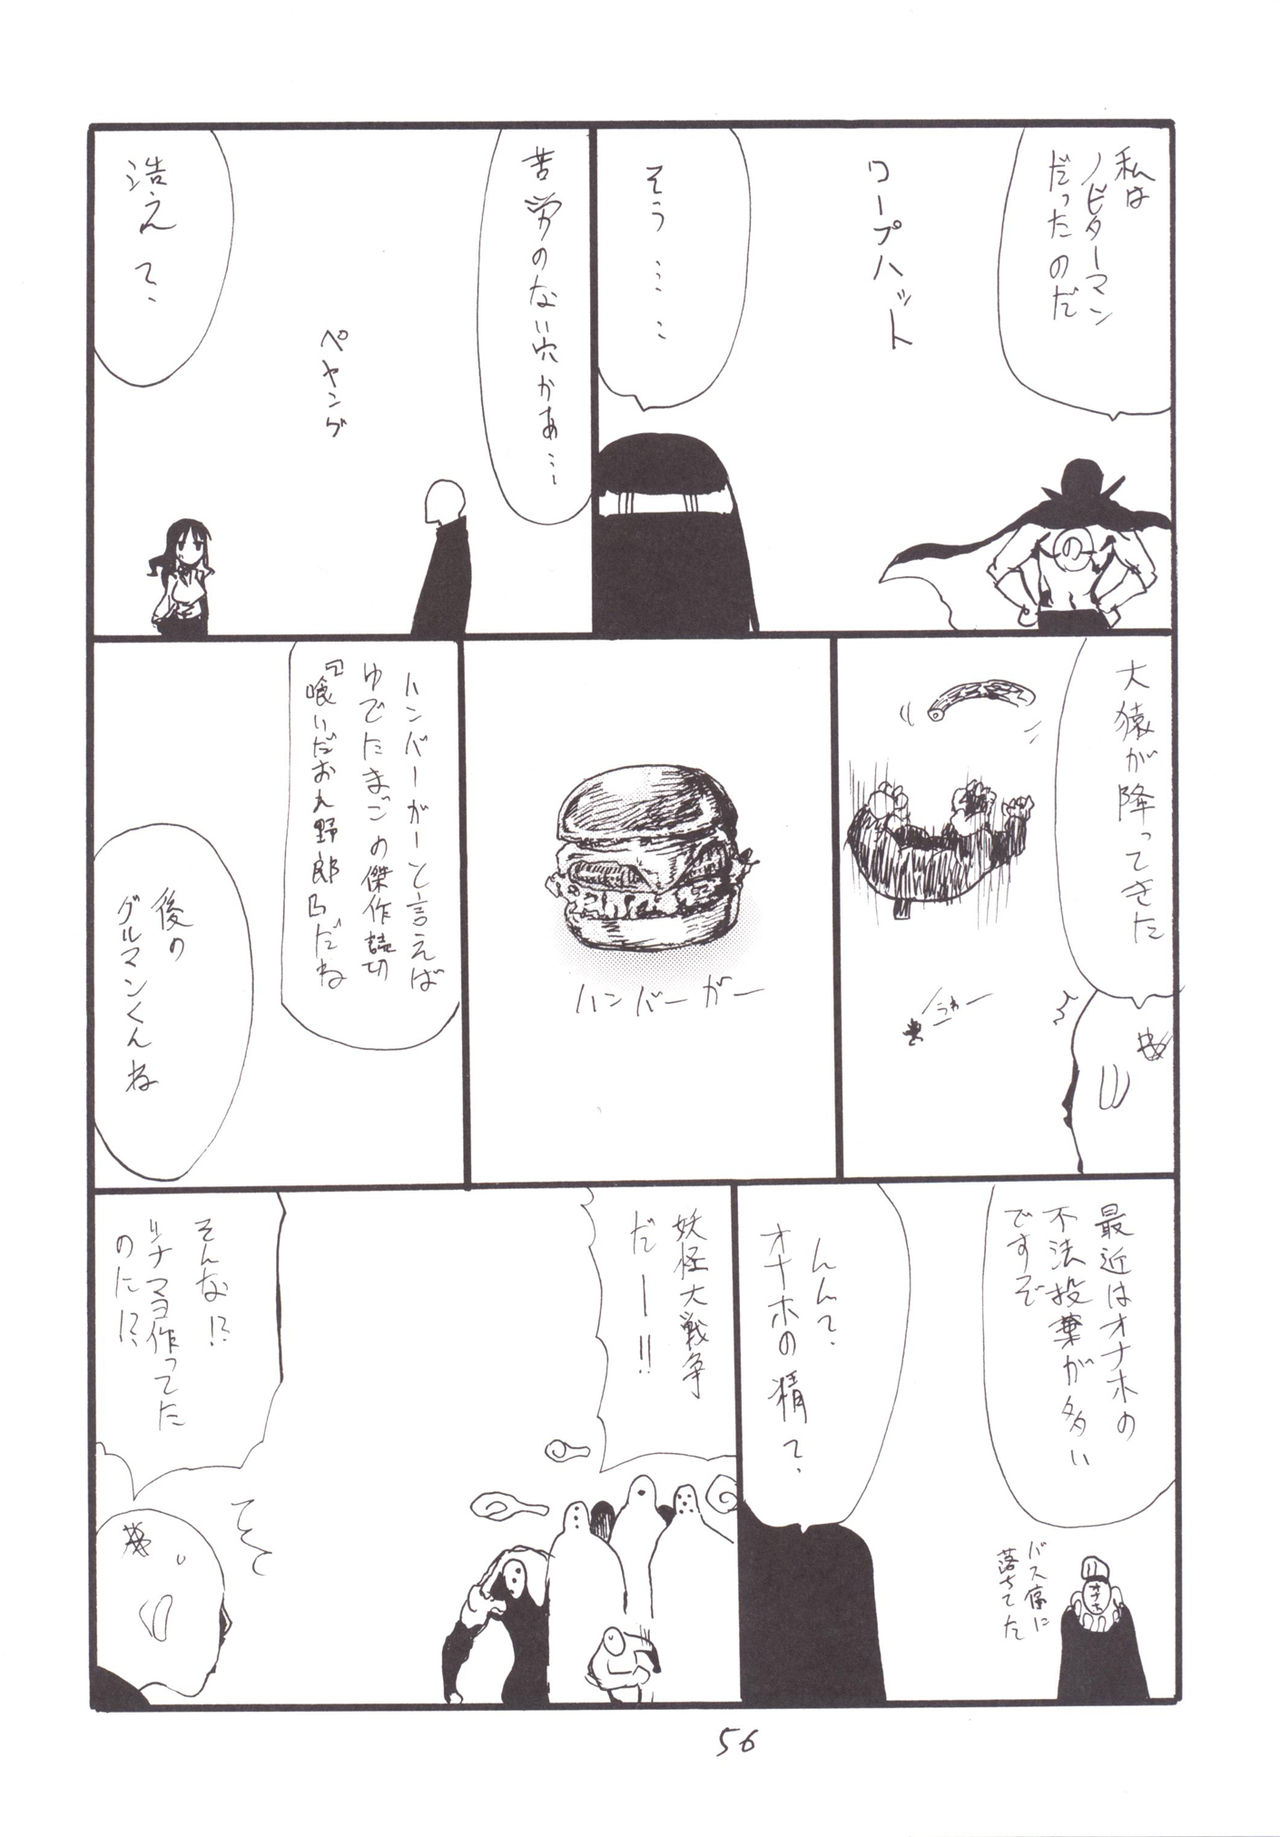 私は
ノビターマン
だったのだ
ワープハット
そう……
苦労のない穴かあ…
ペヤング
浩えて、
の
大猿が降ってきた
うわー
ハンバーガー
ハンバーガーと言えば
ゆでたまごの傑作読切
『喰いだおれ野郎』だね
後の
グルマンくんね
最近はオナホの
不法投棄が多い
ですぞ
バス停に
落ちてた
オナホ
んんて、
オナホの精て、
妖怪大戦争
だー!!
そんな!?
ツナマヨ作ってた
のに!?
56